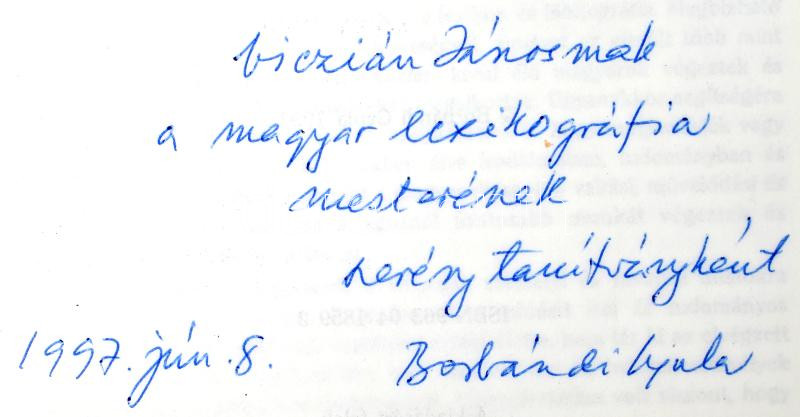 Viczián Jánosnak
a magyar lexikográfia
mesterének
szerény tanítványként
1997. jún. 8. Borbándi Gyula
ISBN 963 04 1859 2